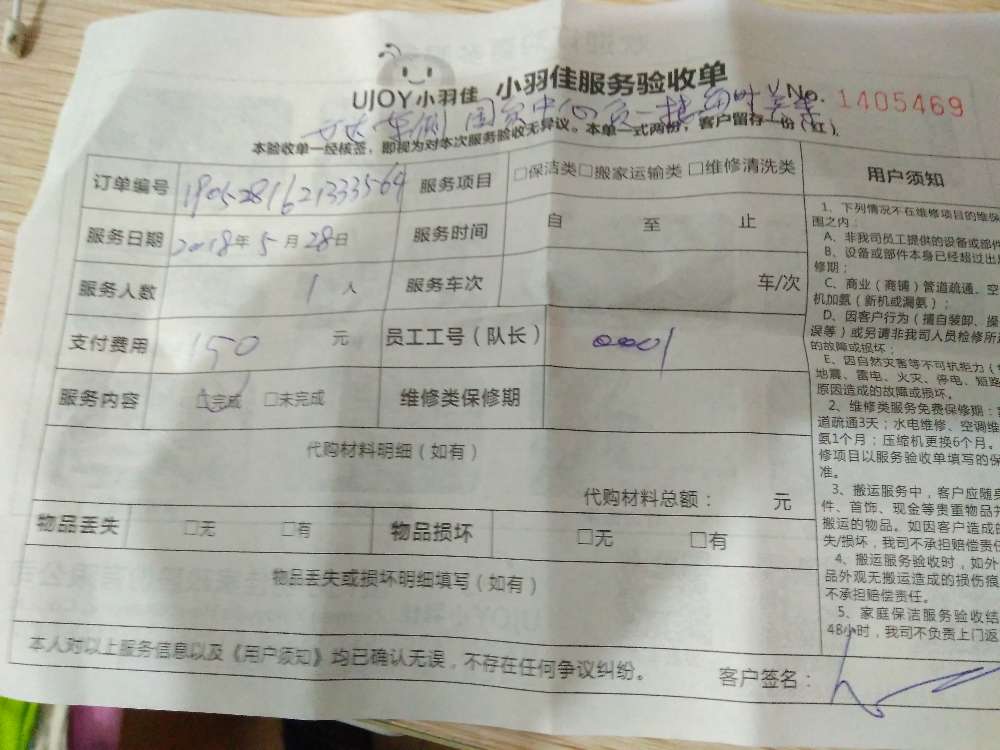 UJOY小羽佳 小羽佳服务验收单 No. 1405469
本验收单一经核签，即视为对本次服务验收无异议。本单一式两份，客户留存一份（红）
订单编号 服务项目 □保洁类□搬家运输类 □维修清洗类
服务日期 2018年 5月 28日 服务时间 自 至 止
服务人数 1人 服务车次 车/次
支付费用 150 元 员工工号（队长） 0001
服务内容 □完成 □未完成 维修类保修期
代购材料明细（如有）
代购材料总额： 元
物品丢失 □无 □有 物品损坏 □无 □有
物品丢失或损坏明细填写（如有）
本人对以上服务信息以及《用户须知》均已确认无误，不存在任何争议纠纷。
客户签名：
用户须知
1、下列情况不在维修项目的维
围之内：
A、非我司员工提供的设备或部
B、设备或部件本身已经超过出
修期；
C、商业（商铺）管道疏通、空
机加氨（新机或漏氨）；
D、因客户行为（擅自装卸、操
误等）或另请非我司人员检修所
的故障或损坏；
E、因自然灾害等不可抗能力（
地震、雷电、火灾、停电、短路
原因造成的故障或损坏。
2、维修类服务免费保修期：
道疏通3天；水电维修、空调维
氨1个月；压缩机更换6个月。
修项目以服务验收单填写的保
准。
3、搬运服务中，客户应随
件、首饰、现金等贵重物品
搬运的物品。如因客户造成
失/损坏，我司不承担赔偿责
4、搬运服务验收时，如外
品外观无搬运造成的损伤痕
不承担赔偿责任。
5、家庭保洁服务验收结
48小时，我司不负责上门返